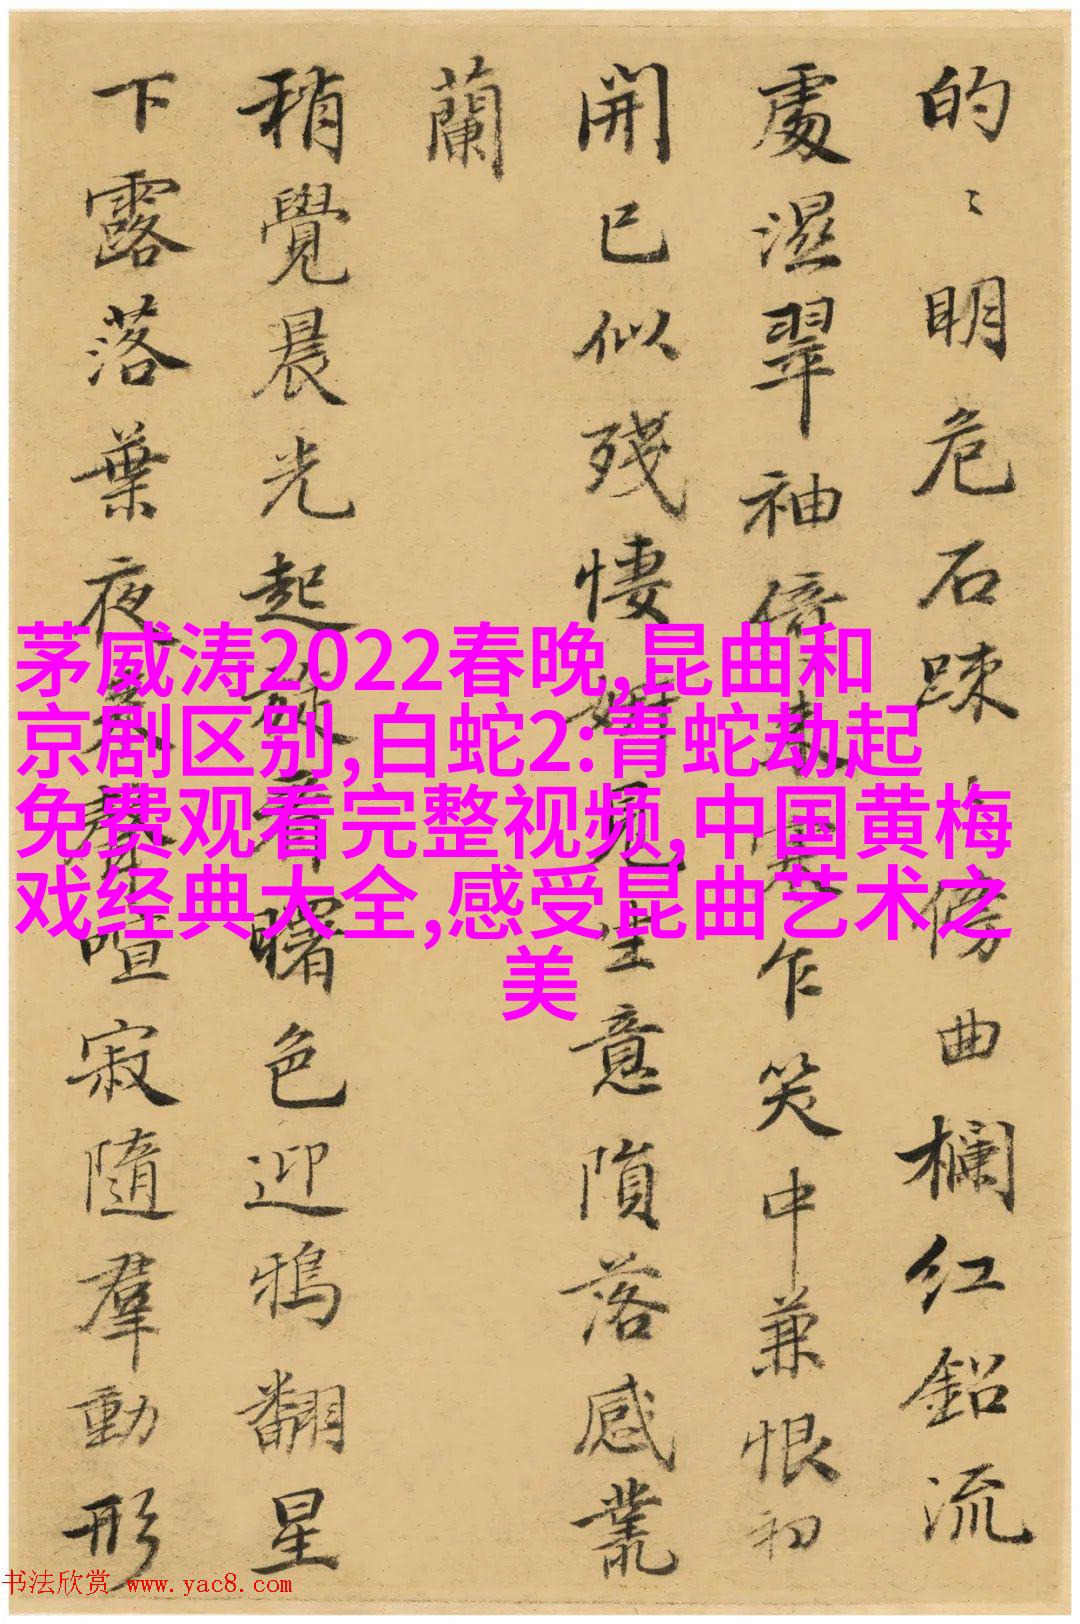 的〻明危石疎　傍曲欄红鉛流
處濕翠袖倚　寒乍笑中兼恨初
開已似殘悽　見生意隕落感叢
蘭
稍覺晨光起　看曙色迎鴉翻星
下露落葉夜　喧寂隨羣動形
茅威涛2022春晚,昆曲和
京剧区别,白蛇2:青蛇劫起
免费观看完整视频,中国黄梅
戏经典大全,感受昆曲艺术之
美
书法欣赏 www.yac8.com